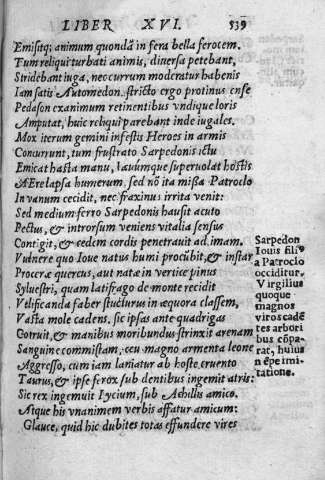 LIBER XVI. 539
Emisitq; animum quondā in fera bella ferocem.
Tum reliqui turbati animis, diuersa petebant,
Stridebant iuga, nec currum moderatur habenis
Iam satis Automedon. stricto ergo protinus ense
Pedason exanimum retinentibus vndique loris
Amputat, huic reliqui parebant inde iugales.
Mox iterum gemini infestis Heroes in armis
Concurrunt, tum frustrato Sarpedonis ictu
Emicat hasta manu, lauumque superuolat hostis
AErelapsa humerum. sed nō ita missa Patroclo
In vanum cecidit, nec fraxinus irrita venit:
Sed medium ferro Sarpedonis hausit acuto
Pectus, & introrsum veniens vitalia sensus
Contigit, & sedem cordis penetrauit ad imam.
Vulnere quo Ioue natus humi procubit, & instar
Proceræ quercus, aut natæ in vertice pinus
Syluestri, quam latifrago de monte recidit
Velificanda faber structurus in æquora classem,
Vasta mole cadens. sic ipsas ante quadrigas
Corruit, & manibus moribundus strinxit arenam
Sanguine commistam, ceu magno armenta leone
Aggresso, cum iam laniatur ab hoste cruento
Taurus, & ipse ferox sub dentibus ingemit atris:
Sic rex ingemuit Lycium, sub Achillis amico.
Atque his vnanimem verbis affatur amicum:
Glauce, quid hic dubites totas effundere vires
Sarpedon
Iouis fili⁹
a Patroclo
occiditur.
Virgilius
quoque
magnos
viros cadē
tes arbori
bus cōpa-
rat, huius
nēpe imi-
tatione.